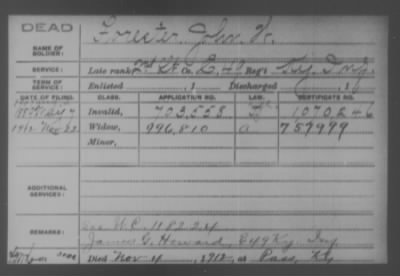 DEAD
NAME OF SOLDIER:
SERVICE: Late rank, Co. E, 49 Reg't Ky. Inf.
TERM OF SERVICE: Enlisted , 1 Discharged , 1
DATE OF FILING. CLASS. APPLICATION NO. LAW. CERTIFICATE NO.
Invalid, 763,558 1070246
1912 Nov. 22 Widow, 996,810 a 759999
Minor,
ADDITIONAL SERVICES:
REMARKS: See W.C. 118224
James G. Howard, E 49 Ky. Inf.
Died Nov 4, 1912, at Pass, Ky.